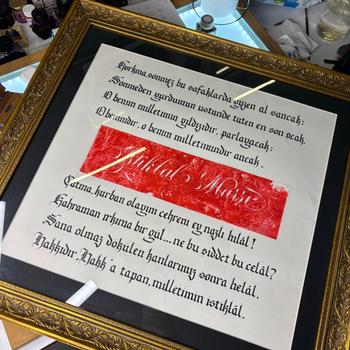 Korkma, sönmez bu şafaklarda yüzen al sancak;
Sönmeden yurdumun üstünde tüten en son ocak.
O benim milletimin yıldızıdır, parlayacak;
O benimdir, o benim milletimindir ancak.
İstiklâl Marşı
Çatma, kurban olayım çehrene ey nazlı hilâl!
Kahraman ırkıma bir gül... ne bu şiddet bu celâl?
Sana olmaz dökülen kanlarımız sonra helâl,
Hakkıdır, Hakk'a tapan, milletimin istiklâl.